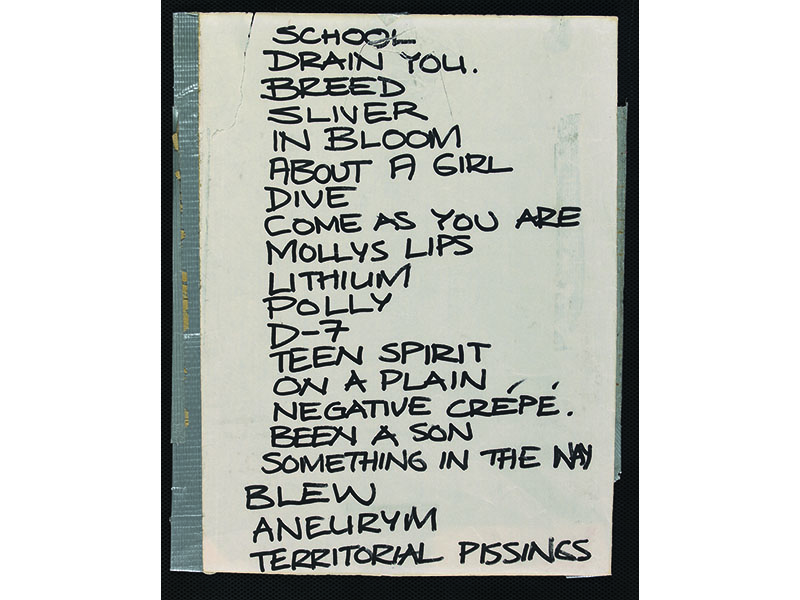 SCHOOL
DRAIN YOU.
BREED
SLIVER
IN BLOOM
ABOUT A GIRL
DIVE
COME AS YOU ARE
MOLLYS LIPS
LITHIUM
POLLY
D-7
TEEN SPIRIT
ON A PLAIN
NEGATIVE CRÉPÉ.
BEEN A SON
SOMETHING IN THE WAY
BLEW
ANEURYM
TERRITORIAL PISSINGS